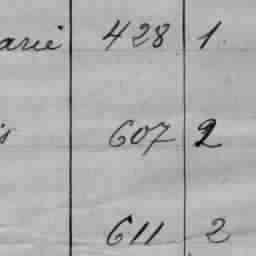 arie 428 1.
s 607 2
611 2